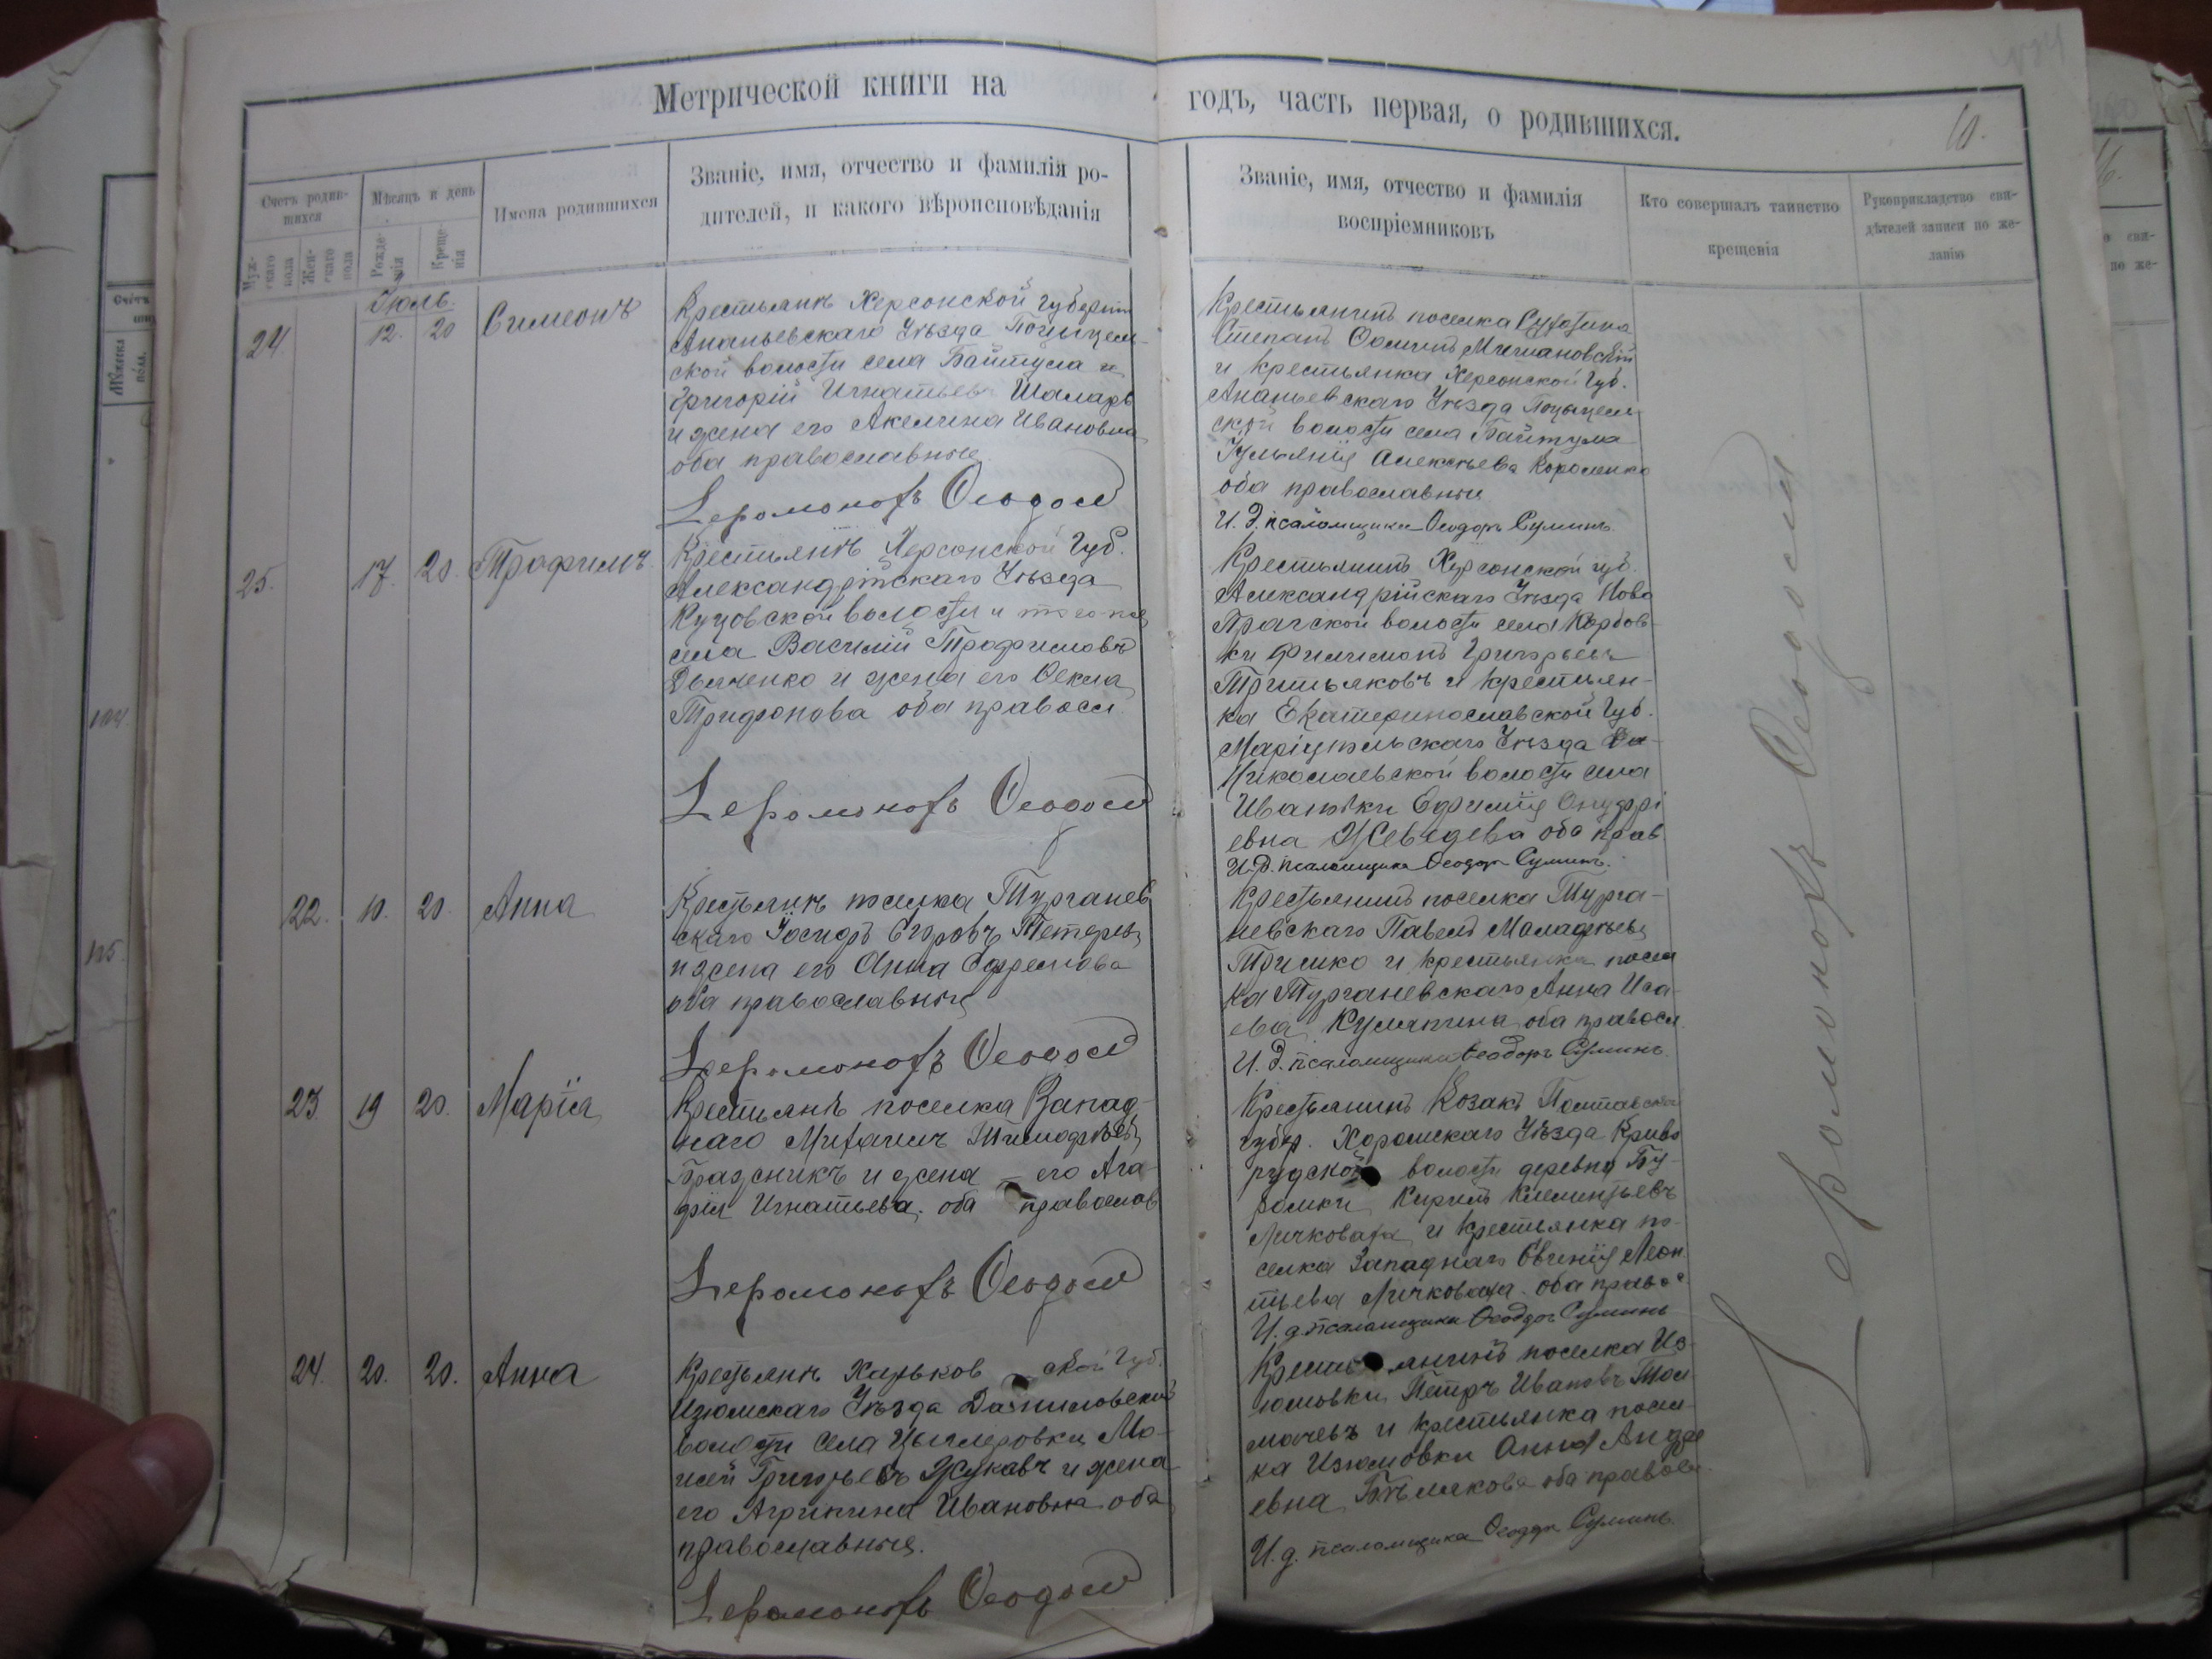 Метрической книги на
годъ, часть первая, о родившихся.
10.
Счетъ родив-
шихся
Мѣсяцъ и день
Имена родившихся
Званіе, имя, отчество и фамилія ро-
дителей, и какого вѣроисповѣданія
Муж-
скаго
пола
Жен-
скаго
пола
Рожде-
нія
Креще-
нія
Званіе, имя, отчество и фамилія
воспріемниковъ
Кто совершалъ таинство
крещенія
Рукоприкладство сви-
дѣтелей записи по же-
ланію
Іюль.
24. 12. 20 Симеонъ
Крестьянинъ Херсонской губерніи
Ананьевскаго Уѣзда
ской волости села Байтула
Григорій Игнатьевъ Шаларь
и жена его Акелина Ивановна
оба православные
Іеромонахъ Ѳеодосій
Крестьянинъ поселка
Степанъ
и крестьянка Херсонской Губ.
Ананьевскаго Уѣзда
ской волости села Байтула
Алексѣева Короленко
оба православные
И. д. псаломщика Ѳеодоръ Суминъ.
25. 17. 20. Трофимъ
Крестьянинъ Херсонской Губ.
Александрійскаго Уѣзда
Куцовской волости и того-же
села Василій Трофимовъ
Дьяченко и жена его Ѳекла
Трифонова оба правосл.
Іеромонахъ Ѳеодосій
Крестьянинъ Херсонской губ.
Александрійскаго Уѣзда Ново
Прагской волости села
ки Филимонъ Григорьевъ
Третьяковъ и крестьян-
ка Екатеринославской Губ.
Маріупольскаго Уѣзда
Николаевской волости села
Ивановки Ефимія Онуфрі
евна оба прав
И. д. псаломщика Ѳеодоръ Суминъ.
22. 10. 20. Анна
Крестьянинъ поселка Турганев
скаго Іосифъ Егоровъ
и жена его Анна Ефремова
оба православные
Іеромонахъ Ѳеодосій
Крестьянинъ поселка Турга-
невскаго Павелъ Малафѣевъ
Тришко и крестьянка посел
ка Турганевскаго Анна Иса-
ева оба правосл.
И. д. псаломщика Ѳеодоръ Суминъ.
23. 19 20. Марія
Крестьянинъ поселка Запад-
наго Митрофанъ Тимофѣевъ
Бражникъ и жена его Ага-
фія Игнатьева. оба православ
Іеромонахъ Ѳеодосій
Крестьянинъ Козакъ Полтавской
губер. Хорольскаго Уѣзда Криво
рудской волости деревни Бу-
ромки Кирилъ Клементьевъ
Личковаха и крестьянка по-
селка Западнаго Евгенія Леон
тьева Личковаха оба правос
И. д. псаломщика Ѳеодоръ Суминъ
24. 20. 20. Анна
Крестьянинъ Харьков ской Губ.
Изюмскаго Уѣзда Даниловской
волости села Мо-
исей Григорьевъ Жуковъ и жена
его Агрипина Ивановна оба
православные.
Іеромонахъ Ѳеодосій
Крестьянинъ поселка Из-
юмовки Петръ Ивановъ Тол
мачевъ и крестьянка посел-
ка Изюмовки Анна Андре
евна Бѣлякова оба правосл.
И. д. псаломщика Ѳеодоръ Суминъ.
Іеромонахъ Ѳеодосій